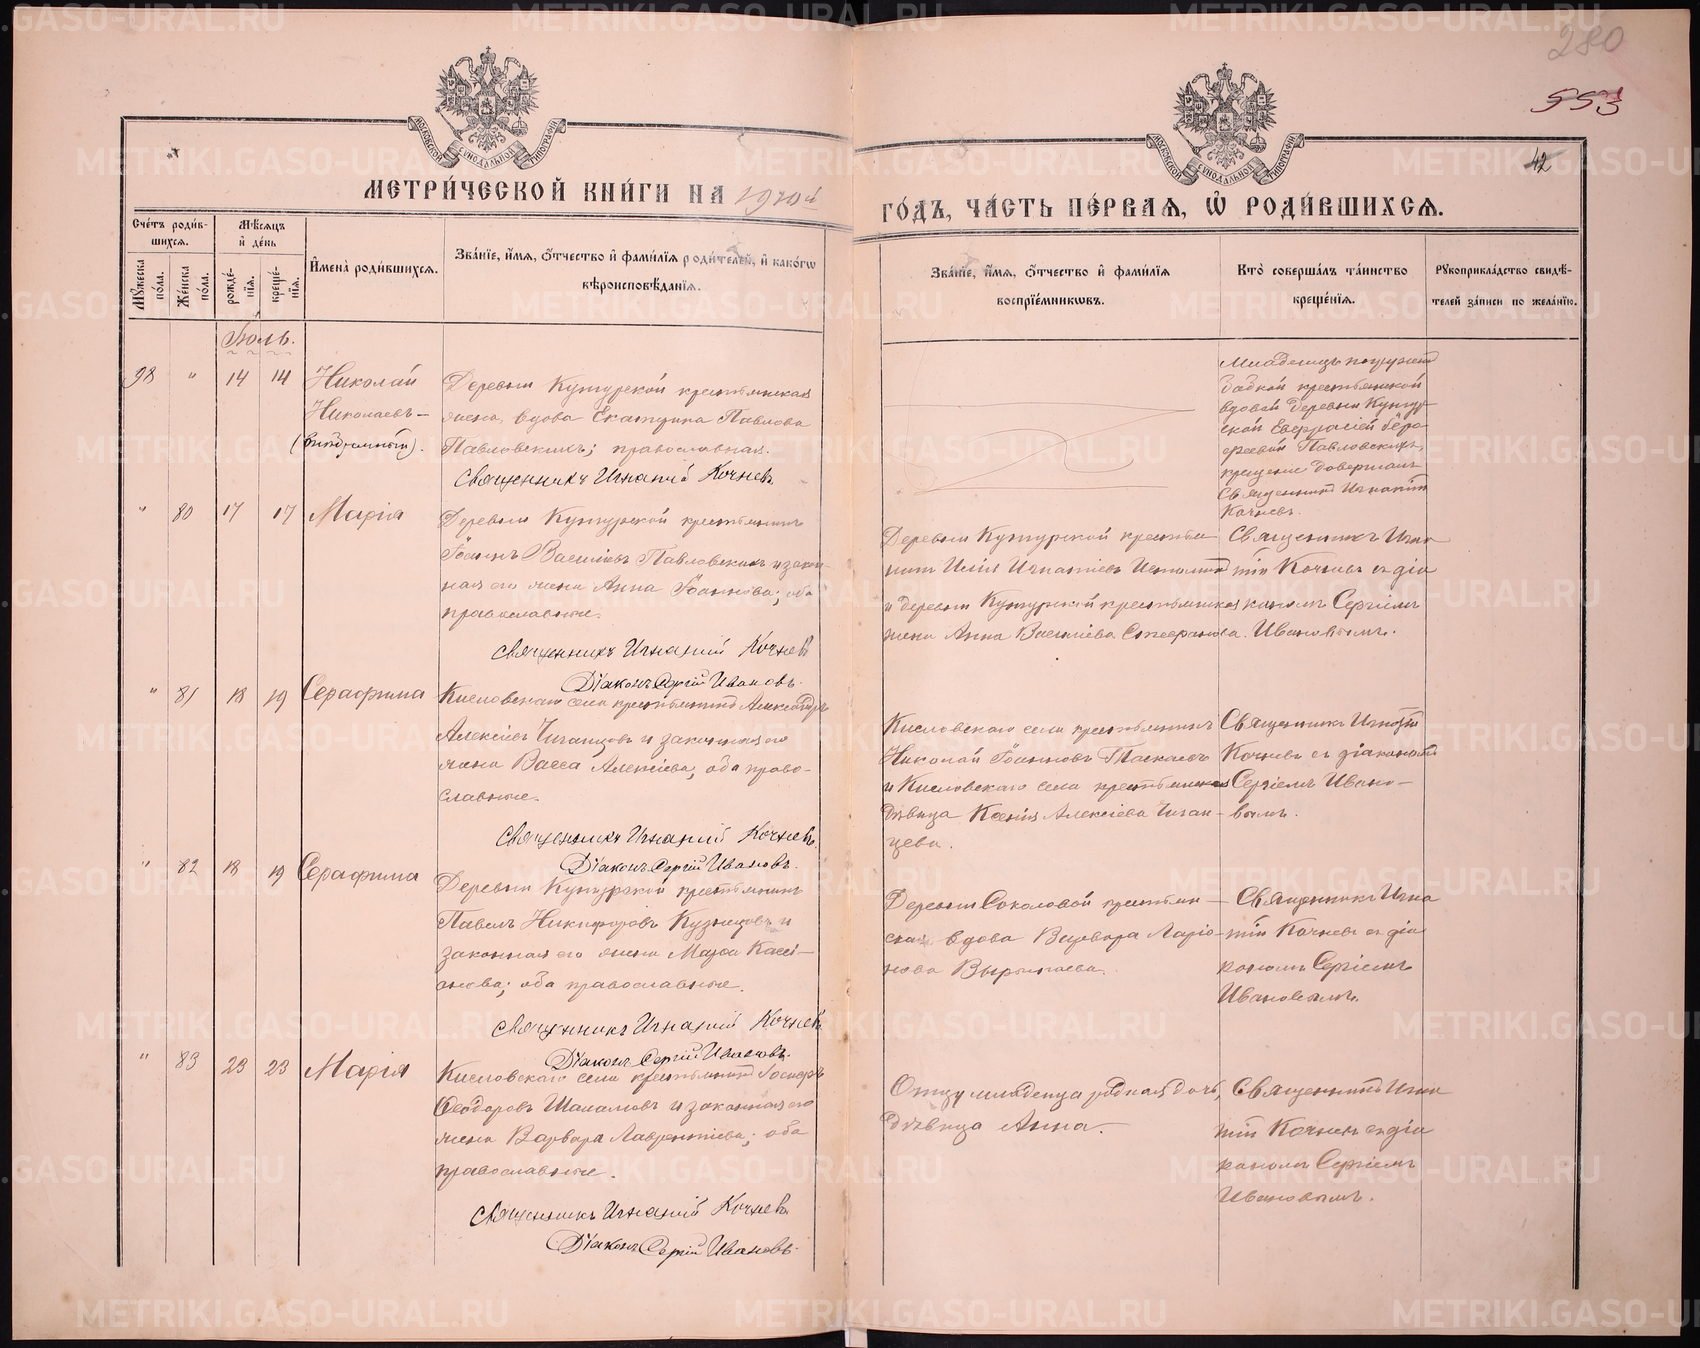 280
553
42
МОСКОВСКОЙ СУНОДАЛЬНОЙ ТИПОГРАФІИ
МОСКОВСКОЙ СУНОДАЛЬНОЙ ТИПОГРАФІИ
МЕТРИ́ЧЕСКОЙ КНИ́ГИ НА 1910й
ГО́ДЪ, ЧА́СТЬ ПЕ́РВАЯ, Ѡ РОДИ́ВШИХСЯ.
Сче́тъ роди́в-
шихся.
Мꙋ́жеска по́ла.
Же́нска по́ла.
Мѣ́сяцъ
и҆ де́нь
рожде́-
нїѧ.
креще́-
нїѧ.
И҆мена̀ роди́вшихсѧ.
Зва́нїе, и҆́мѧ, ѻ҆́тчество и҆ фами́лїѧ роди́телей, и҆ како́гѡ
вѣроисповѣ́данїѧ.
Зва́нїе, и҆́мѧ, ѻ҆́тчество и҆ фами́лїѧ
воспрїе́мникѡвъ.
Кто̀ соверша́лъ та́инство
креще́нїѧ.
Рꙋкоприкла́дство свидѣ́-
телей за́писи по жела́нїю.
Іюль.
98 " 14 14 Николай
Николаевъ —
Деревни Кутурской крестьянская
жена, вдова Екатерина Павлова
Павловскихъ; православная.
Священникъ Игнатій Кочневъ
Младенецъ погружен
бабкой крестьянской
вдовой деревни Кутур-
ской Евфросіей
Павловскихъ,
крещеніе довершалъ
Священникъ Игнатій
Кочневъ.
" 80 17 17 Марія
Деревни Кутурской крестьянинъ
Іоаннъ Васильевъ Павловскихъ и закон-
ная его жена Анна Іоаннова; оба
православные.
Священникъ Игнатій Кочневъ
Діаконъ Сергій Ивановъ.
Деревни Кутурской крестья-
нинъ Илія Игнатіевъ
и деревни Кутурской крестьянская
жена Анна Васильева
Священникъ Игна-
тій Кочневъ съ діа-
кономъ Сергіемъ
Ивановымъ.
" 81 18 19 Серафима
Кисловскаго села крестьянинъ Александръ
Алексіевъ Чиганцовъ и законная его
жена Васса Алексіева; оба право-
славные.
Священникъ Игнатій Кочневъ
Діаконъ Сергій Ивановъ.
Кисловскаго села крестьянинъ
Николай Іоанновъ Таскаевъ
и Кисловскаго села крестьянская
дѣвица Ксенія Алексіева Чиган-
цева.
Священникъ Игнатій
Кочневъ съ діакономъ
Сергіемъ Ивано-
вымъ.
" 82 18 19 Серафима
Деревни Кутурской крестьянинъ
Павелъ Никифоровъ Кузнецовъ и
законная его жена Марѳа Кассі-
анова; оба православные.
Священникъ Игнатій Кочневъ
Діаконъ Сергій Ивановъ.
Деревни Соколовой крестьян-
ская вдова Варвара Ларіо-
нова
Священникъ Игна-
тій Кочневъ съ діа-
кономъ Сергіемъ
Ивановымъ.
" 83 23 23 Марія
Кисловскаго села крестьянинъ Іосифъ
Ѳеодоровъ Шаламовъ и законная его
жена Варвара Лаврентіева; оба
православные.
Священникъ Игнатій Кочневъ
Діаконъ Сергій Ивановъ.
Отцу младенца родная дочь,
дѣвица Анна.
Священникъ Игна-
тій Кочневъ съ діа-
кономъ Сергіемъ
Ивановымъ.
METRIKI.GASO-URAL.RU